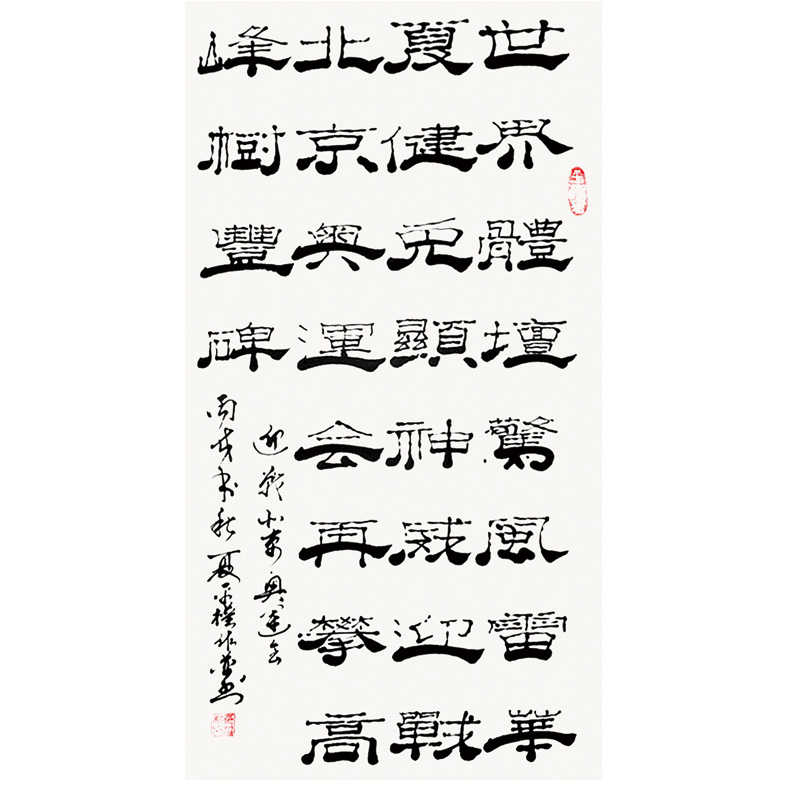 世界體壇驚風雷華
夏健兒顯神威迎戰
北京奧運会再攀高
峰樹豐碑
迎戰北京奧運会
丙戌秋夏